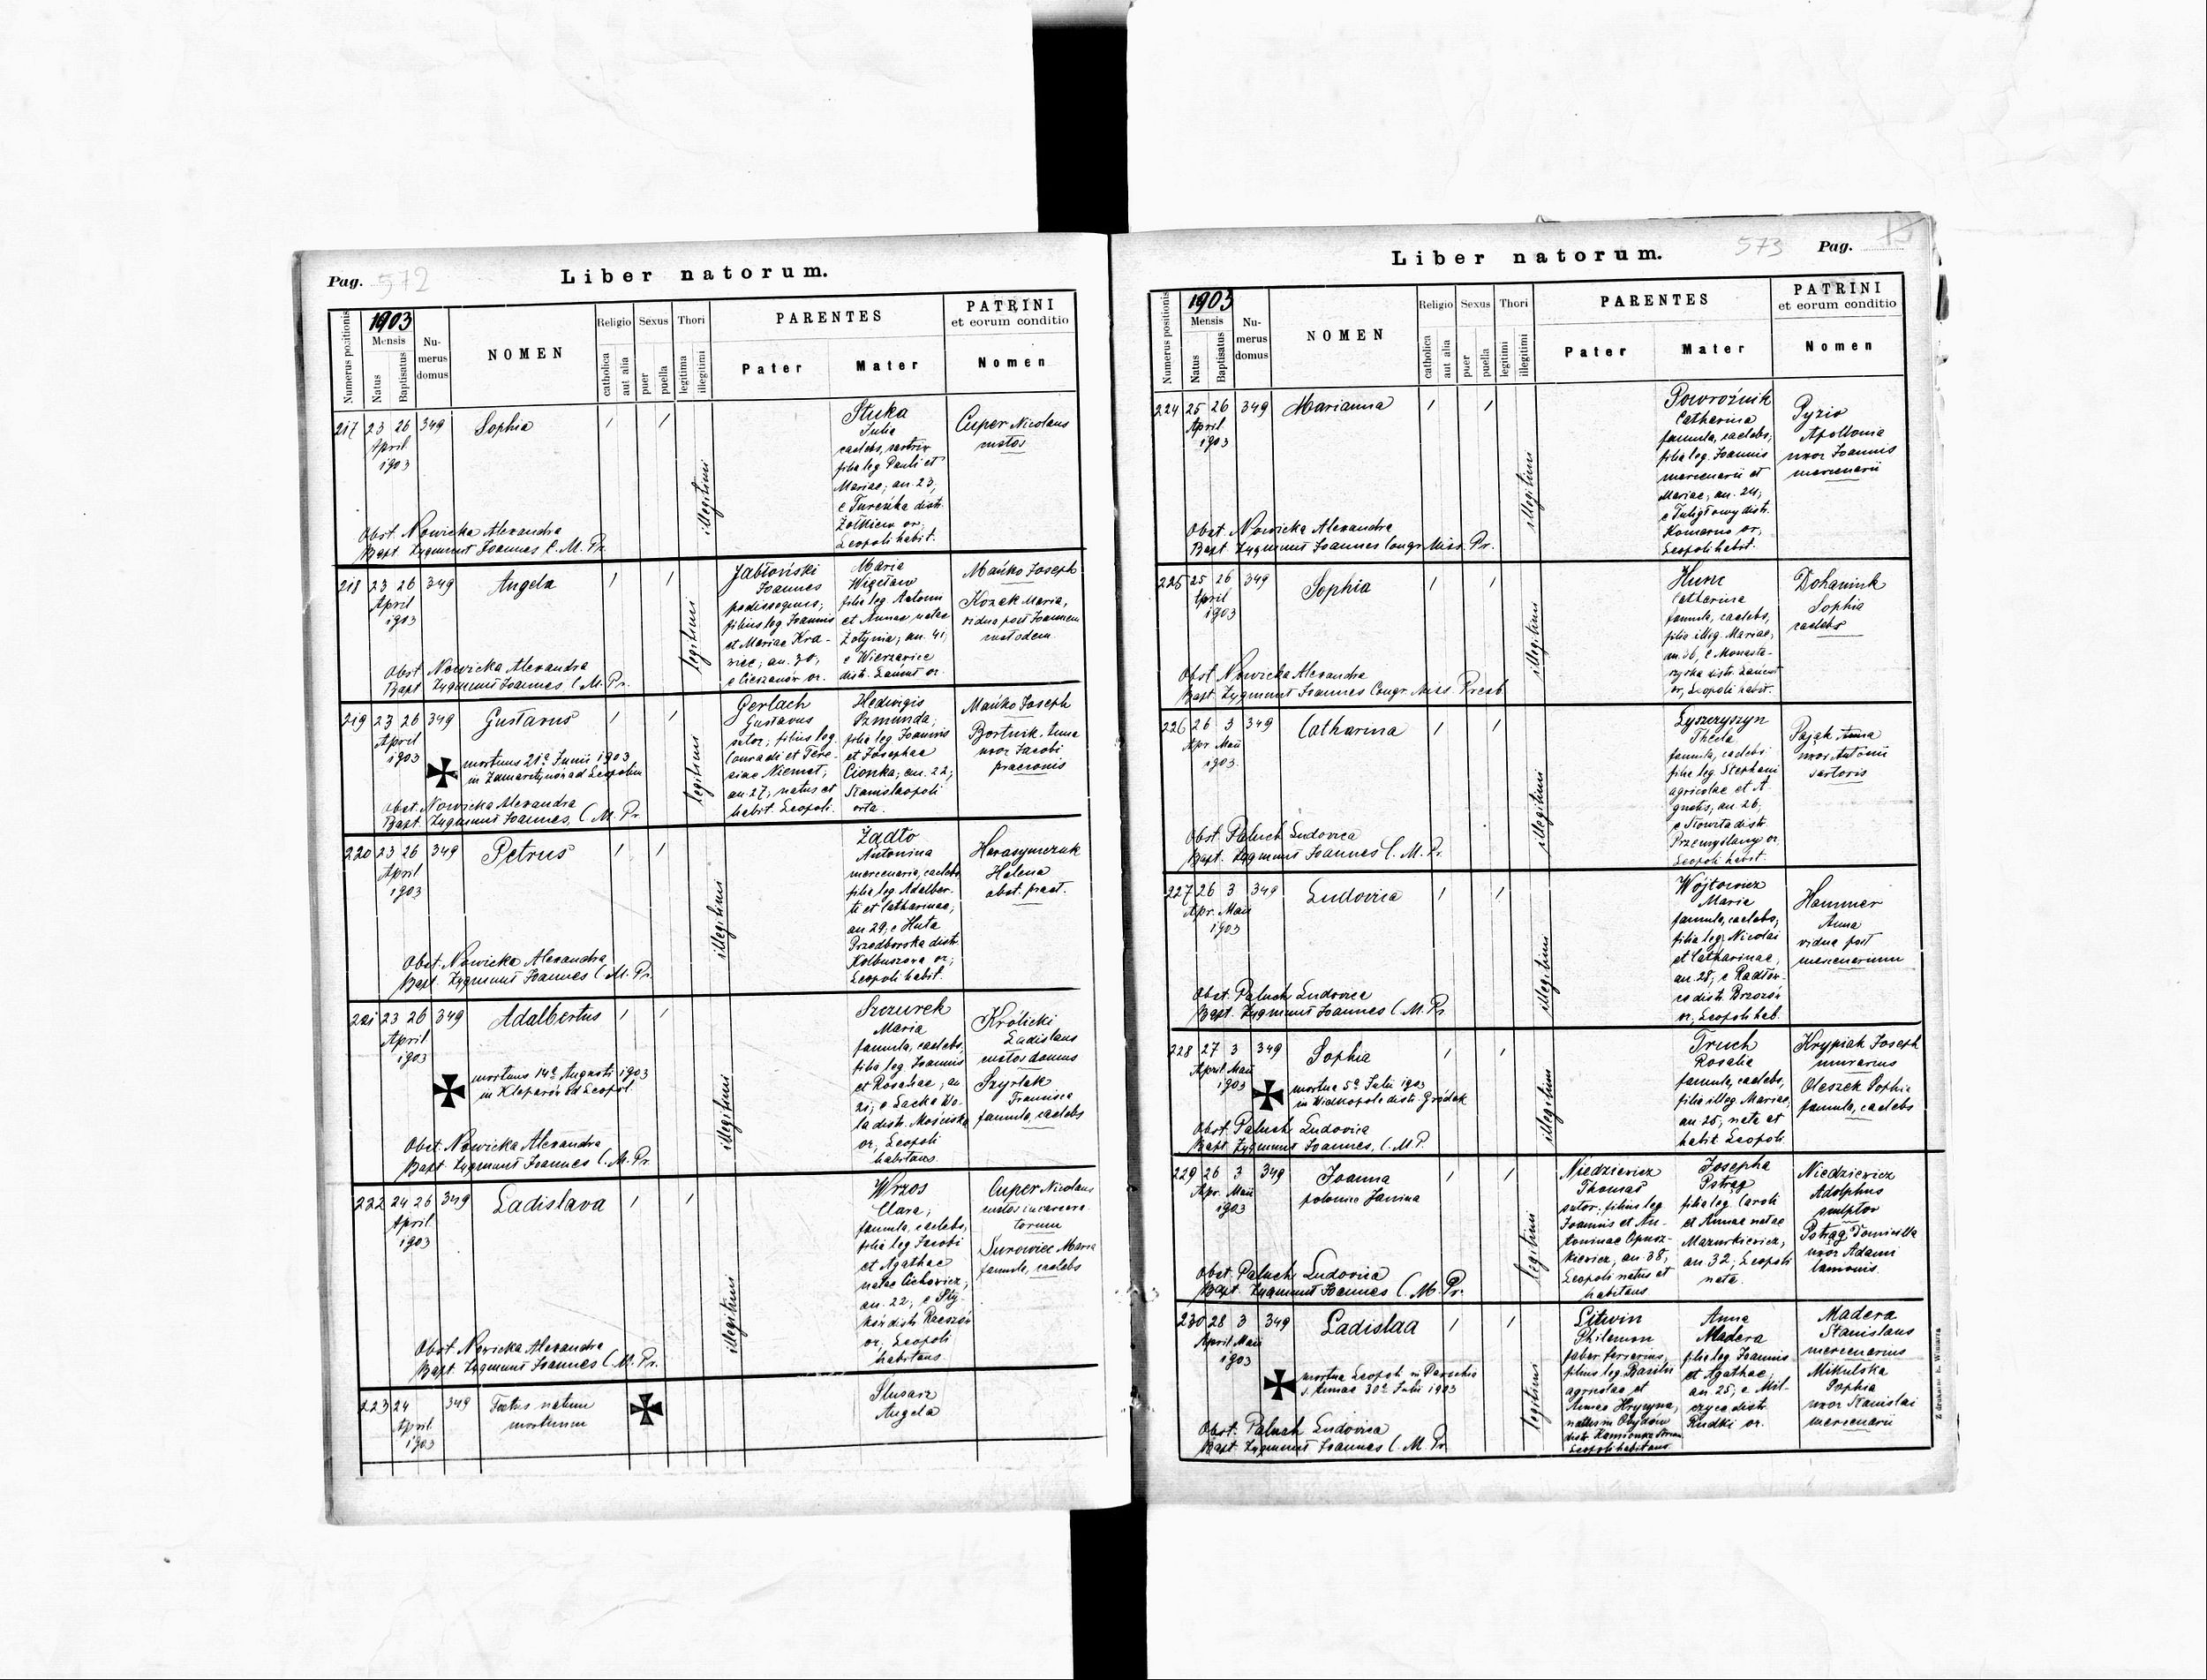 Pag. 572
Liber natorum.
Numerus positionis
1903
Mensis
Natus
Baptisatus
Numerus domus
NOMEN
Religio
catholica
aut alia
Sexus
puer
puella
Thori
legitima
illegitimi
PARENTES
Pater
Mater
PATRINI
et eorum conditio
Nomen
217 23 26 349 Sophia
April
1903
illegitimi
Stuka
Julia
caelebs, sartrix
filia leg Pauli et
Mariae; an. 23,
e Turenka distr.
Żołkiew or;
Leopoli habit.
Cuper Nicolaus
custos
Obst. Nowicka Alexandra
Bapt Zygmunt Joannes C. M. Pr.
218 23 26 349 Angela
April
1903
legitimi
Jabłoński
Joannes
pedissequus;
filius leg Joannis
et Mariae Kra-
wiec; an. 30;
e Cieszanów or.
Maria
Węcław
filia leg. Antonii
et Annae natae
Żołynia; an. 41;
e Wierzawice
distr. Łańcut or.
Mańko Joseph
Kozak Maria,
vidua post Joannem
custodem
Obst Nowicka Alexandra
Bapt Zygmunt Joannes C. M. Pr.
219 23 26 349 Gustavus
April
1903
mortuus 21a Junii 1903
in Zamarstynów ad Leopolim
legitimi
Gerlach
Gustavus
sutor; filius leg.
Conradi et Tere-
siae Niemat;
an. 27; natus et
habit. Leopoli.
Hedwigis
Szmunda;
filia leg Joannis
et Josephae
Cionka; an. 22;
Stanislaopoli
orta.
Mańko Joseph
Bortnik Anna
uxor Jacobi
praeconis
Obst. Nowicka Alexandra
Bapt. Zygmunt Joannes, C. M. Pr.
220 23 26 349 Petrus
April
1903
illegitimi
Żądło
Antonina
mercenaria, caelebs
filia leg Adalber-
ti et Catharinae;
an 29; e Huta
Przedborska distr.
Kolbuszowa or;
Leopoli habit.
Harasymczuk
Helena
obst. pract.
Obst. Nowicka Alexandra
Bapt. Zygmunt Joannes C. M. Pr.
221 23 26 349 Adalbertus
April
1903
mortuus 14a Augusti 1903
in Kleparów ad Leopol.
illegitimi
Szczurek
Maria
famula, caelebs,
filia leg Joannis
et Rosaliae; an
21; e Lacka Wo-
la distr. Mościska
or; Leopoli
habitans.
Królicki
Ladislaus
custos domus
Szyrlak
Francisca
famula, caelebs
Obst. Nowicka Alexandra
Bapt. Zygmunt Joannes C. M. Pr.
222 24 26 349 Ladislava
April
1903
illegitimi
Wrzos
Clara;
famula, caelebs,
filia leg Jacobi
et Agathae
natae Cichowicz;
an. 22; e Sty-
ków distr Rzeszów
or, Leopoli
habitans
Cuper Nicolaus
custos incarcera
torum
Surowiec Maria
famula, caelebs
Obst. Nowicka Alexandra
Bapt. Zygmunt Joannes C. M. Pr.
223 24 349 Foetus natum
April mortuum
1903
Slusarz
Angela
Liber natorum.
573 Pag.
Numerus positionis
1903
Mensis
Natus
Baptisatus
Numerus domus
NOMEN
Religio
catholica
aut alia
Sexus
puer
puella
Thori
legitimi
illegitimi
PARENTES
Pater
Mater
PATRINI
et eorum conditio
Nomen
224 25 26 349 Marianna
April
1903
illegitimi
Powroźnik
Catharina
famula, caelebs;
filia leg. Joannis
mercenarii et
Mariae; an. 24;
e Tuligłowy distr.
Komarno or;
Leopoli habit.
Pyzio
Apollonia
uxor Joannis
mercenarii
Obst. Nowicka Alexandra
Bapt Zygmunt Joannes Congr. Miss. Pr.
225 25 26 349 Sophia
April
1903
illegitimi
Hunc
Catharina
famula, caelebs,
filia illeg Mariae;
an. 36, e Monaste-
rzyska distr. Łańcut
or; Leopoli habit.
Dohaniuk
Sophia
caelebs
Obst Nowicka Alexandra
Bapt Zygmunt Joannes Congr. Miss. Presb
226 26 3 349 Catharina
Apr. Maii
1903
illegitimi
Łyszczyszyn
Thecla
famula, caelebs
filia leg. Stephani
agricolae et A
gnetis; an. 26;
distr.
Przemyślany or.
Leopoli habit.
Pająk Anna
uxor Antonii
sartoris
Obst. Paluch Ludovica
Bapt. Zygmunt Joannes C. M. Pr.
227 26 3 349 Ludovica
Apr. Maii
1903
illegitimi
Wojtowicz
Maria
famula, caelebs;
filia leg. Nicolai
et Catharinae;
an. 28; e Radłow-
ce distr. Brzozów
or; Leopoli hab.
Hammer
Anna
vidua post
mercenarium
Obst. Paluch Ludovica
Bapt. Zygmunt Joannes C. M. Pr
228 27 3 349 Sophia
April Maii
1903
mortua 5a Julii 1903
in Wielkopole distr. Gródek
illegitimi
Truch
Rosalia
famula, caelebs,
filia illeg Mariae,
an 25; nata et
habit Leopoli
Krypiak Joseph
murarius
Oleszek Sophia
famula, caelebs
Obst. Paluch Ludovica
Bapt. Zygmunt Joannes, C. M. P.
229 26 3 349 Joanna
Apr. Maii polonice Janina
1903
legitimi
Niedziewicz
Thomas
sutor; filius leg
Joannis et An-
toninae Opusz-
kiewicz, an. 38;
Leopoli natus et
habitans
Josepha
Pstrąg
filia leg Caroli
et Annae natae
Mazurkiewicz;
an. 32; Leopoli
nata.
Niedziewicz
Adolphus
sculptor
Pstrąg Domicilla
uxor Adami
lanionis.
Obst. Paluch Ludovica
Bapt. Zygmunt Joannes C. M. Pr.
230 28 3 349 Ladislaa
April Maii
1903
mortua Leopoli in Parochia
S. Annae 30a Julii 1903
legitimi
Litwin
Philemon
faber ferrarius;
filius leg. Basilii
agricolae et
Annae Hrycyna;
natus in Obydów
distr. Kamionka Strum
Leopoli habitans
Anna
Madera
filia leg. Joannis
et Agathae;
an. 25; e Mil-
czyce distr.
Rudki or.
Madera
Stanislaus
mercenarius
Mikulska
Sophia
uxor Stanislai
mercenarii
Obst. Paluch Ludovica
Bapt. Zygmunt Joannes C. M. Pr.
Z drukarni E. Winiarza